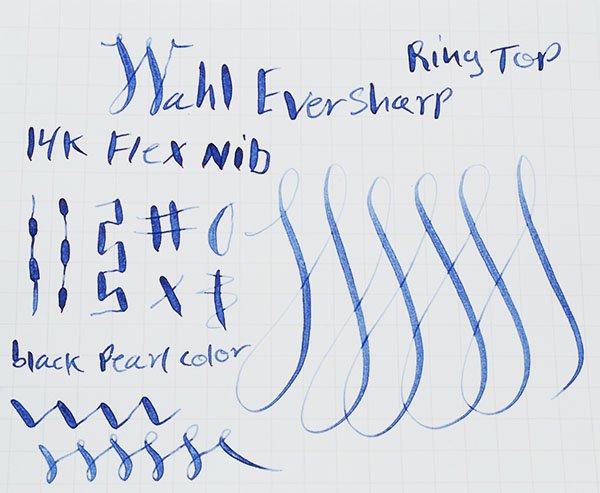 Wahl Eversharp
Ring Top
14K Flex Nib
black Pearl color